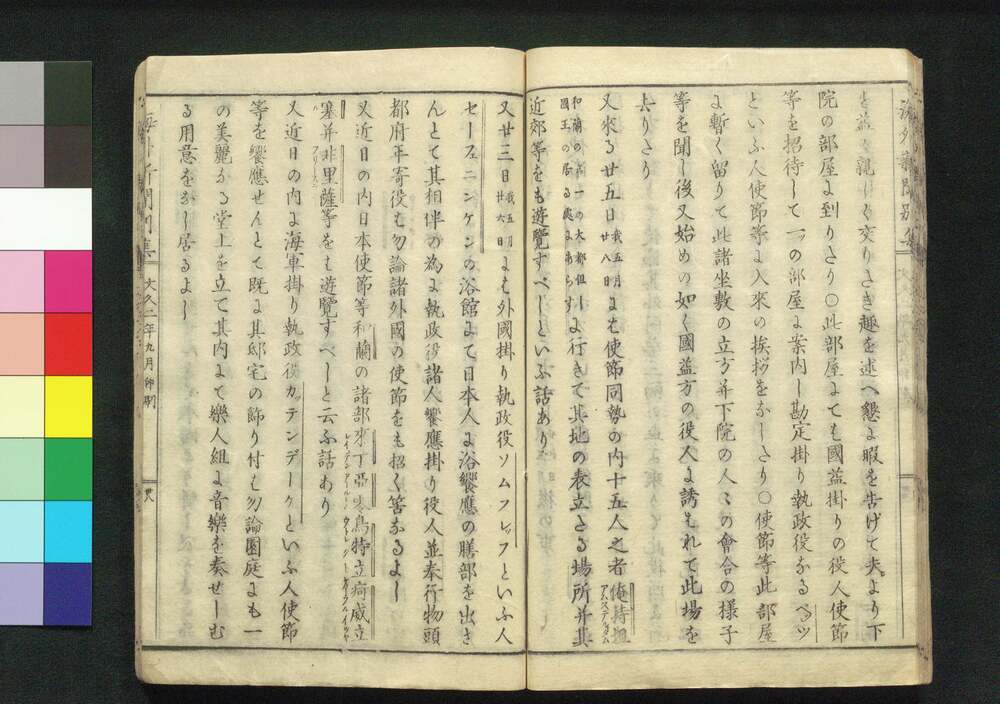 を益々親しく交りたき趣を述べ懇に暇を告げて夫より下
院の部屋に到りたり〇此部屋にても國益掛りの役人使節
等を招待して一ツの部屋に案内し勘定掛り執政役なるベッツ
といふ人使節等に入來の挨拶をなしたり〇使節等此部屋
に暫く留りて此諸坐敷の立方并下院の人々の會合の様子
等を聞し後又始めの如く國益方の役人に誘はれて此場を
去りたり
又來る廿五日我五月廿八日には使節同勢の内十五人之者俺特坦アムステルダム
和蘭の第一の大都但し國王の居る處にあらずに行きて其地の表立たる場所并其
近郊等をも遊覽すべしといふ話あり
又廿三日我五月廿六日にも外國掛り執政役ソムフレッフといふ人
セーフェニンケンの浴館にて日本人に浴饗應の膳部を出さ
んとて其相伴の為に執政役諸人饗應掛り役人並奉行物頭
都府年寄役は勿論諸外國の使節をも招く筈なるよし
又近日の内日本使節等和蘭の諸部來丁亞
特立
塞并非里薩等をも遊覽すべしと云ふ話あり
又近日の内に海軍掛り執政役カッテンデーケといふ人使節
等を饗應せんとて既に其邸宅の飾り付は勿論園庭にも一
の美麗なる堂上を立て其内にて樂人組に音樂を奏せしむ
る用意をなし居るよし
文久二年九月